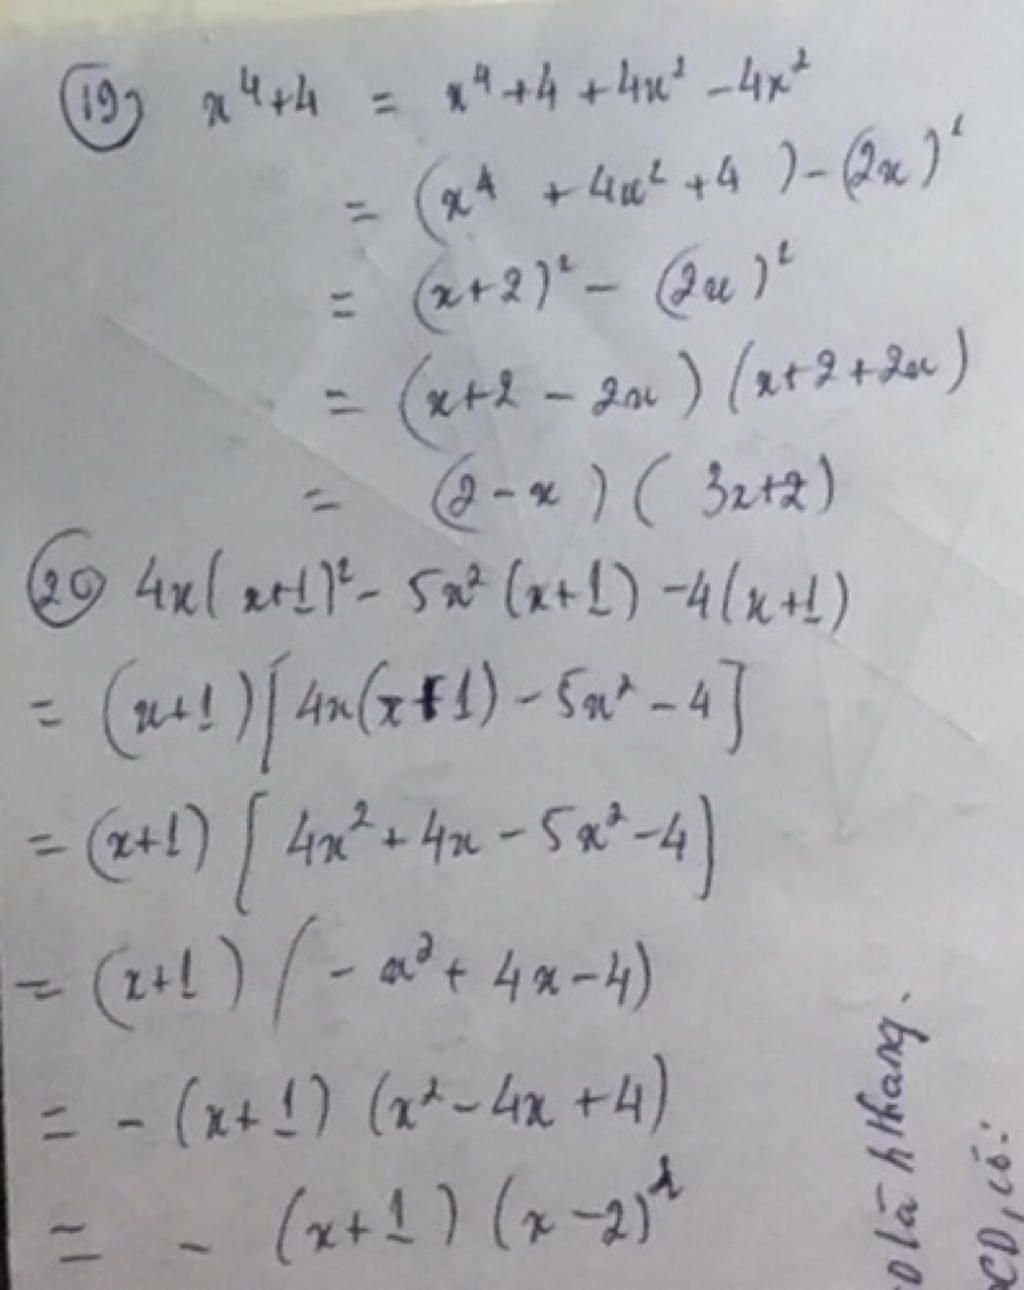 19) x⁴+4 = x⁴+4+4x²-4x²
= (x⁴ +4x²+4 )-(2x)²
= (x+2)² - (2x)²
= (x+2 - 2x) (x+2+2x)
= (2-x) ( 3x+2)
20) 4x( x+1)² - 5x² (x+1) -4(x+1)
= (x+1)[4x(x+1) - 5x² - 4]
= (x+1) [4x²+4x - 5x²-4]
= (x+1) (- x²+ 4x-4)
= - (x+1) (x²-4x+4)
= - (x+1) (x-2)²
là hthang.
CD, có: